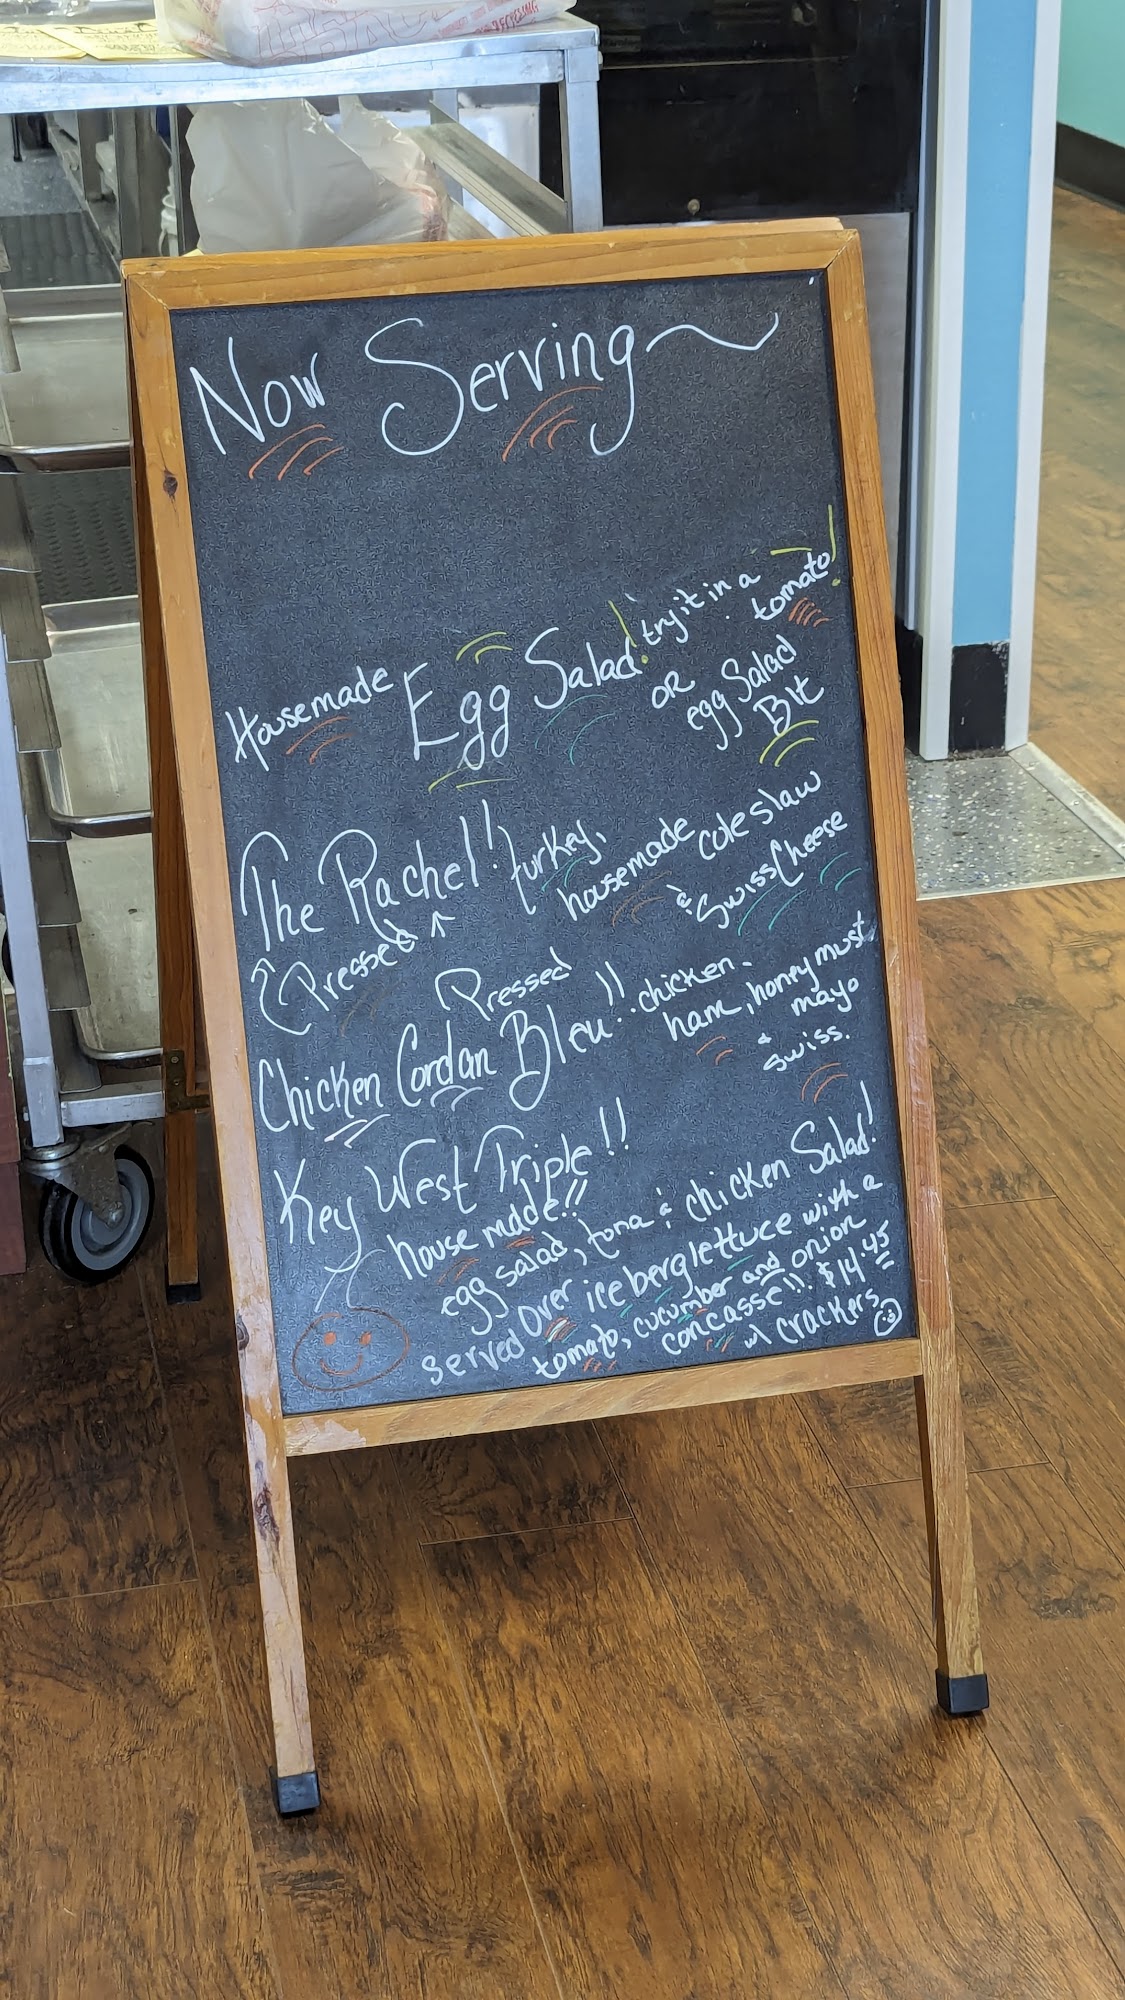 Now Serving
Housemade Egg Salad! try it in a tomato!
OR egg Salad
Blt
The Rachel! turkey,
housemade coleslaw
& Swiss Cheese
Pressed
Pressed
Chicken Cordan Bleu!! chicken.
ham, honeymust
mayo
& Swiss.
Key West Triple!!
house made!!
egg salad, tuna & chicken Salad!
served Over iceberg lettuce with a
tomato, cucumber and onion
concasse!! $14.45
w/ crackers